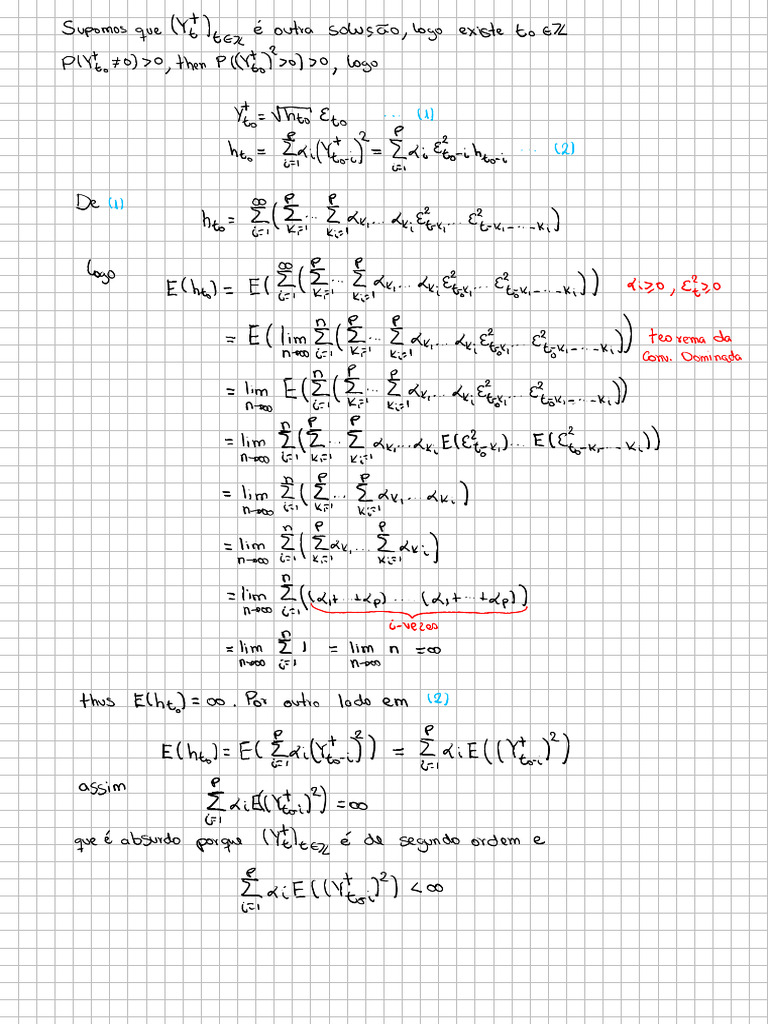 Supomos que (Y_t^+)_{t∈ℤ} é outra solusção, logo existe t_0 ∈ ℤ
P(Y_{t_0}^+ ≠ 0) > 0, then P((Y_{t_0}^+)^2 > 0) > 0, logo
Y_{t_0}^+ = √h_{t_0} ε_{t_0} ... (1)
h_{t_0} = ∑_{i=1}^p α_i (Y_{t_0-i}^+)^2 = ∑_{i=1}^p α_i ε_{t_0-i}^2 h_{t_0-i} ... (2)
De (1)
h_{t_0} = ∑_{i=1}^∞ (∑_{k_1=1}^p ... ∑_{k_i=1}^p α_{k_1} ... α_{k_i} ε_{t-k_1}^2 ... ε_{t-k_1-...-k_i}^2)
logo
E(h_{t_0}) = E(∑_{i=1}^∞ (∑_{k_1=1}^p ... ∑_{k_i=1}^p α_{k_1} ... α_{k_i} ε_{t_0-k_1}^2 ... ε_{t_0-k_1-...-k_i}^2)) α_i ≥ 0, ε_t^2 ≥ 0
= E(lim_{n→∞} ∑_{i=1}^n (∑_{k_1=1}^p ... ∑_{k_i=1}^p α_{k_1} ... α_{k_i} ε_{t_0-k_1}^2 ... ε_{t_0-k_1-...-k_i}^2)) teorema da
Conv. Dominada
= lim_{n→∞} E(∑_{i=1}^n (∑_{k_1=1}^p ... ∑_{k_i=1}^p α_{k_1} ... α_{k_i} ε_{t_0-k_1}^2 ... ε_{t_0-k_1-...-k_i}^2))
= lim_{n→∞} ∑_{i=1}^n (∑_{k_1=1}^p ... ∑_{k_i=1}^p α_{k_1} ... α_{k_i} E(ε_{t_0-k_1}^2) ... E(ε_{t_0-k_1-...-k_i}^2))
= lim_{n→∞} ∑_{i=1}^n (∑_{k_1=1}^p ... ∑_{k_i=1}^p α_{k_1} ... α_{k_i})
= lim_{n→∞} ∑_{i=1}^n (∑_{k_1=1}^p α_{k_1} ... ∑_{k_i=1}^p α_{k_i})
= lim_{n→∞} ∑_{i=1}^n ((α_1+...+α_p) ... (α_1+...+α_p))
i-vezes
= lim_{n→∞} ∑_{i=1}^n 1 = lim_{n→∞} n = ∞
thus E(h_{t_0}) = ∞. Por outro lado em (2)
E(h_{t_0}) = E(∑_{i=1}^p α_i (Y_{t_0-i}^+)^2) = ∑_{i=1}^p α_i E((Y_{t_0-i}^+)^2)
assim
∑_{i=1}^p α_i E((Y_{t_0-i}^+)^2) = ∞
que é absurdo porque (Y_t^+)_{t∈ℤ} é de segundo ordem e
∑_{i=1}^p α_i E((Y_{t_0-i}^+)^2) < ∞